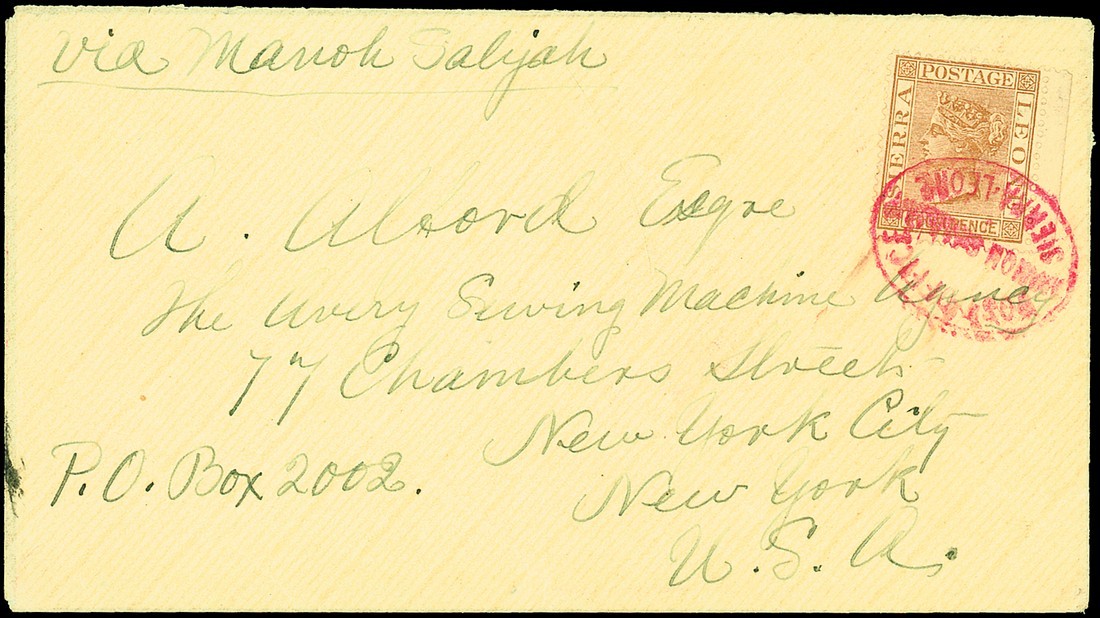 via Manoh Salijah
POSTAGE
SIERRA LEONE
PENCE
POST OFFICE
SIERRA-LEONE
A. Alvord Esqre
The Avery Sewing Machine Agency
77 Chambers Street
New York City
P.O. Box 2002.
New York
U.S.A.